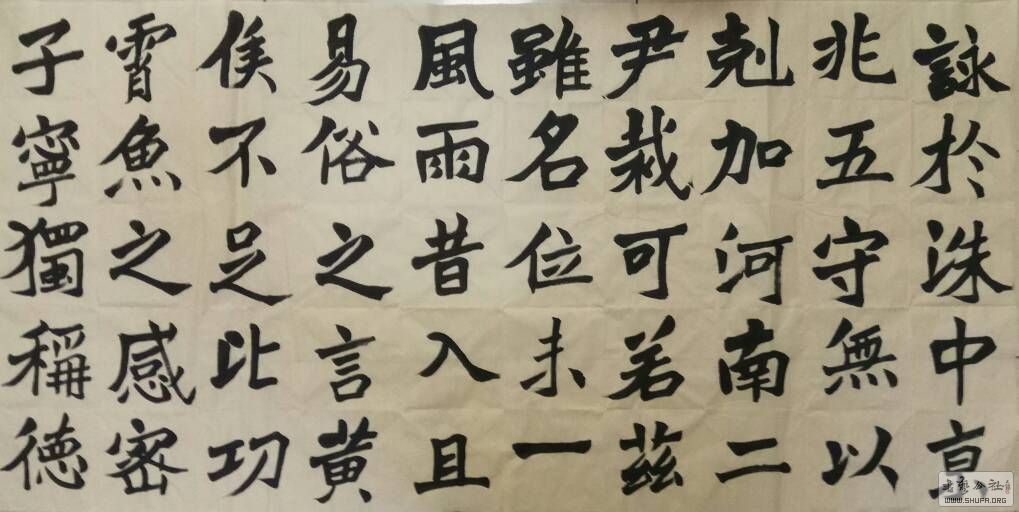 詠於洙中京
兆五守無以
剋加河南二
尹裁可若茲
雖名位未一
風雨昔入且
易俗之言黃
侯不足比功
霄魚之感密
子寧獨稱德
WWW.SHUFA.ORG